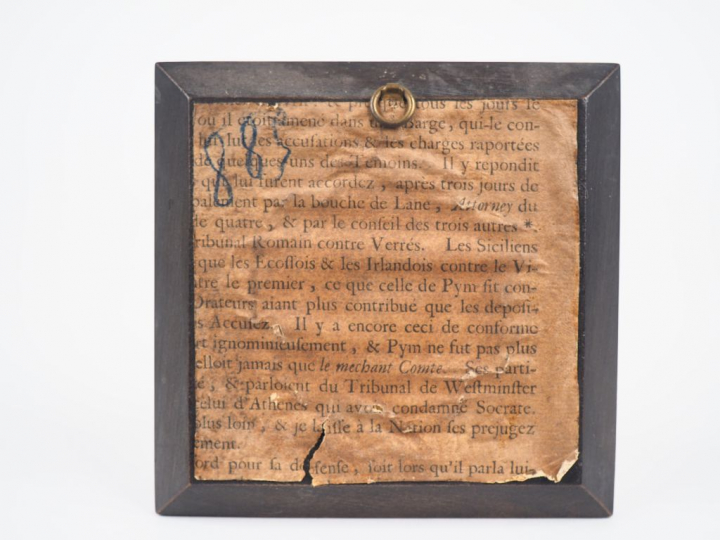 tous les jours le
ou il étoit amené dans une Barge, qui-le con-
lui lut les accusations & les charges raportées
de quelques uns des Temoins. Il y repondit
qui lui furent accordez, apres trois jours de
palement par la bouche de Lane, Attorney du
de quatre, & par le conseil des trois autres *.
ribunal Romain contre Verrés. Les Siciliens
que les Ecossois & les Irlandois contre le Vi-
tre le premier, ce que celle de Pym fit con-
Orateurs aiant plus contribué que les deposi-
s Accusez. Il y a encore ceci de conforme
t ignominieusement, & Pym ne fut pas plus
elloit jamais que le mechant Comte. Ses parti-
é, & parloient du Tribunal de Westminster
celui d'Athenes qui avoit condamné Socrate.
plus loin, & je laisse à la Nation ses prejugez
ement.
ord pour sa defense, soit lors qu'il parla lui-
883